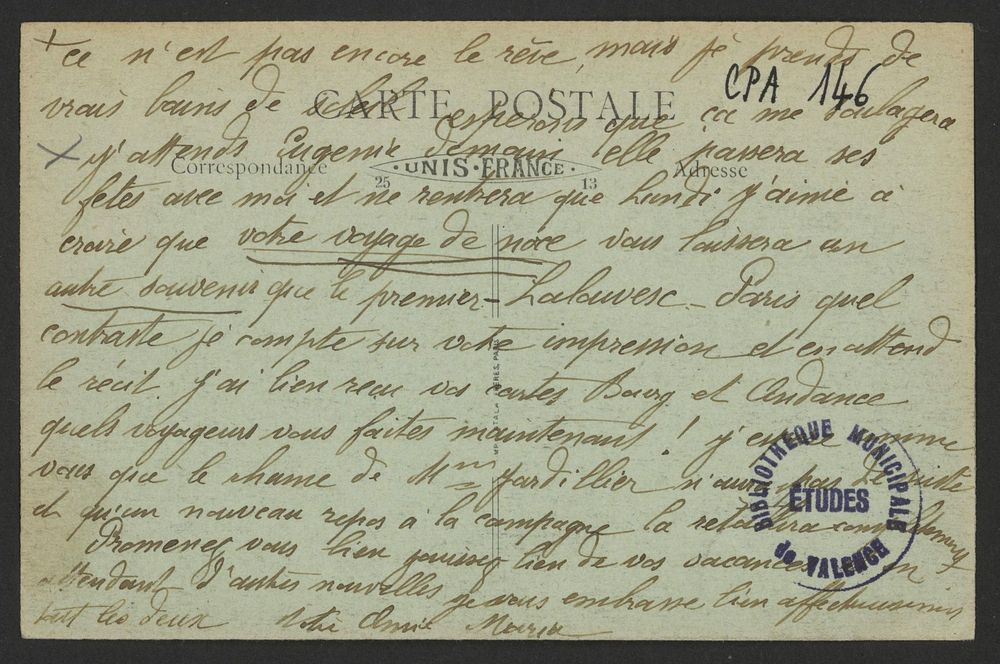 ce n'est pas encore le rêve, mais je prends de
CPA 146
vrais bains de soleil esperons que ça me soulagera
CARTE POSTALE
j'attends Eugenie demain elle passera ses
Correspondance UNIS-FRANCE Adresse
25 13
fêtes avec moi et ne rentrera que Lundi j'aime à
croire que votre voyage de noce vous laissera un
autre souvenir que le premier - Lalouvesc - Paris quel
contraste je compte sur votre impression et en attend
le récit j'ai bien reçu vos cartes Bourg et Andance
quels voyageurs vous faites maintenant ! j'espère comme
vous que le rhume de Mme Jardillier n'aura pas
et qu'un nouveau repos à la campagne la retablira
Promenez vous bien jouissez bien de vos vacances en
attendant d'autres nouvelles je vous embrasse bien affectueusement
tout les deux votre Amie Maria
BIBLIOTHEQUE MUNICIPALE
ÉTUDES
de VALENCE